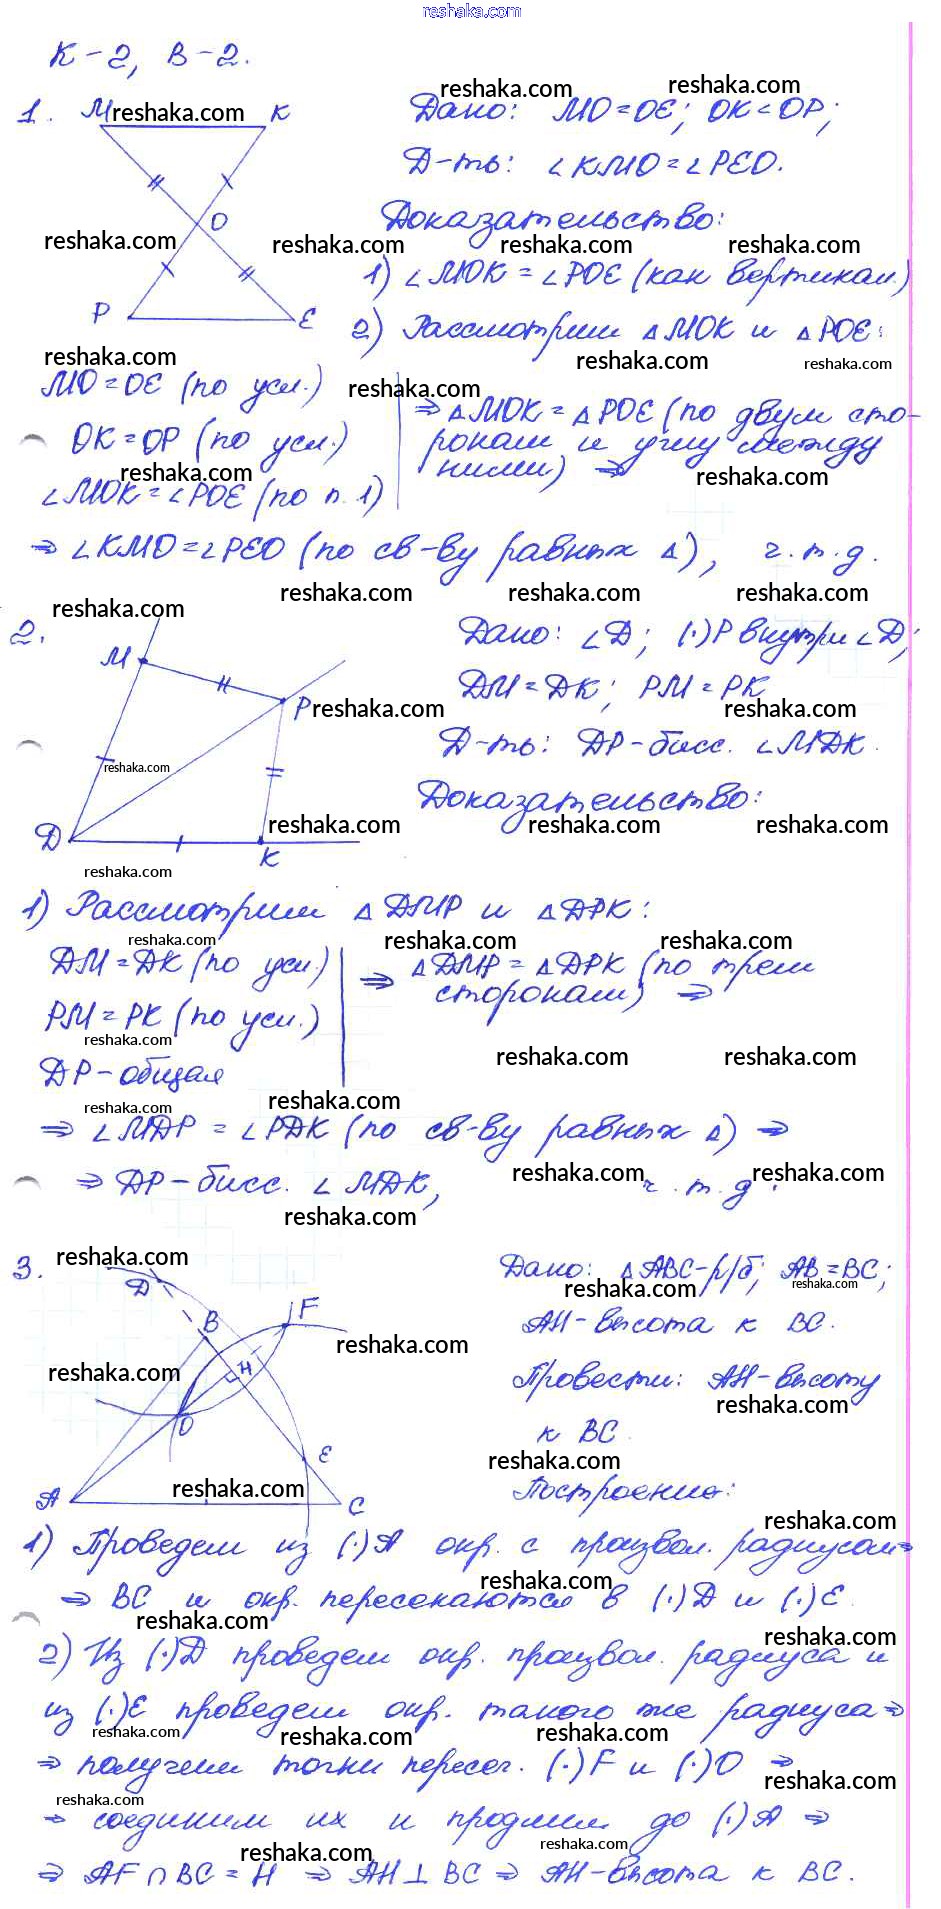 reshaka.com
К-2, В-2.
1. M K Дано: MO=OE; OK<OP;
Д-ть: ∠KMO=∠PEO.
O Доказательство:
1) ∠MOK = ∠POE (как вертикал.)
P E 2) Рассмотрим △MOK и △POE:
MO=OE (по усл.)
OK=OP (по усл.)
∠MOK=∠POE (по п. 1)
⇒ △MOK = △POE (по двум сто-
ронам и углу между
ними) ⇒
⇒ ∠KMO=∠PEO (по св-ву равных △), ч.т.д.
2. M P D K Дано: ∠D; (·)P внутри ∠D;
DM=DK; PM=PK
Д-ть: DP-бисс. ∠MDK.
Доказательство:
1) Рассмотрим △DMP и △DPK:
DM=DK (по усл.)
PM=PK (по усл.)
DP-общая
⇒ △DMP = △DPK (по трем
сторонам) ⇒
⇒ ∠MDP = ∠PDK (по св-ву равных △) ⇒
⇒ DP-бисс. ∠MDK, ч.т.д.
3. D B F H O E A C Дано: △ABC-р/б; AB=BC;
AH-высота к BC.
Провести: AH-высоту
к BC.
Построение:
1) Проведем из (·)A окр. с произвол. радиусом ⇒
⇒ BC и окр. пересекаются в (·)D и (·)E.
2) Из (·)D проведем окр. произвол. радиуса и
из (·)E проведем окр. такого же радиуса ⇒
⇒ получим точки пересеч. (·)F и (·)O ⇒
⇒ соединим их и продлим до (·)A ⇒
⇒ AF ∩ BC = H ⇒ AH ⊥ BC ⇒ AH-высота к BC.